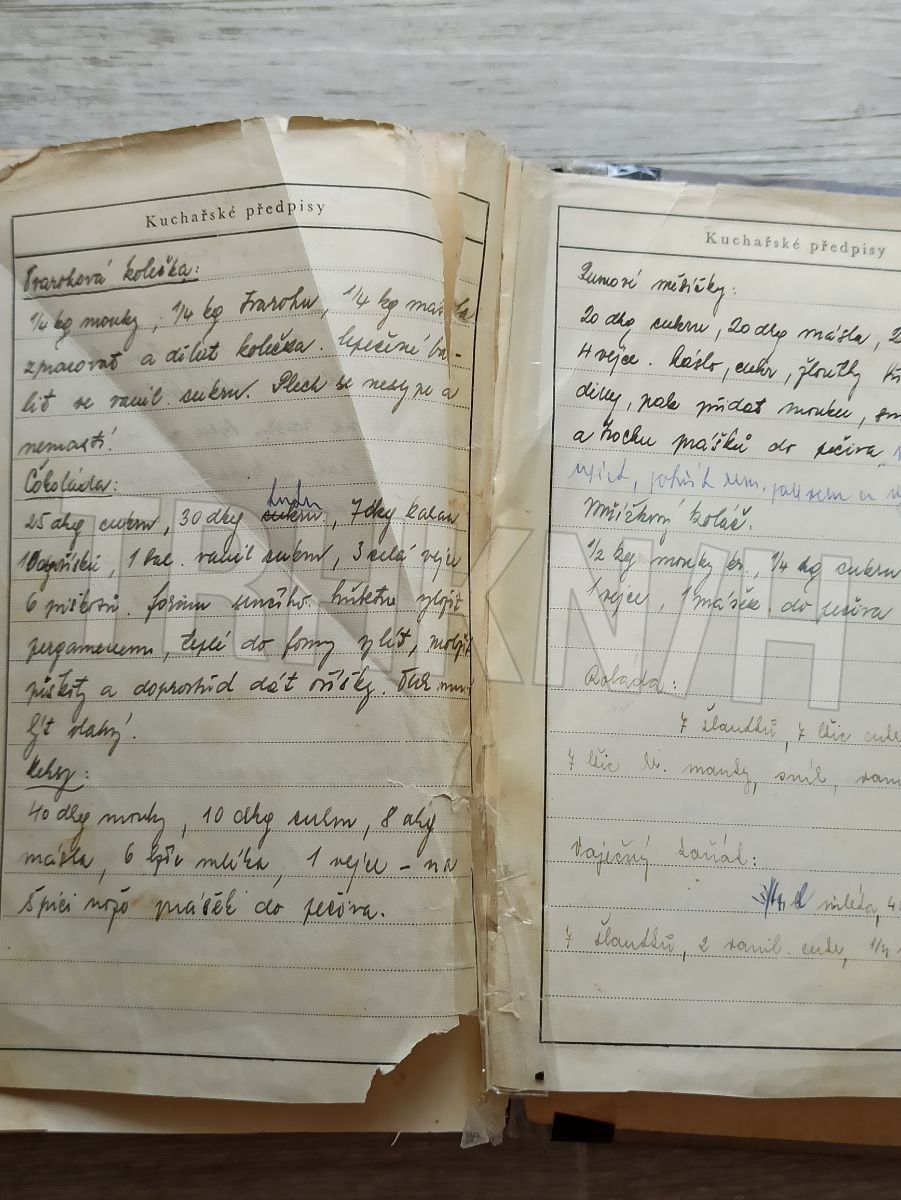 Kuchařské předpisy
Tvarohová kolečka:
1/4 kg mouky, 1/4 kg tvarohu, 1/4 kg másla
zpracovat a dělat kolečka. Upečené ba-
lit ve vanil. cukru. Plech se nesype a
nemastí!
Čokoláda:
tuku
25 dkg cukru, 30 dkg cukru, 7 dkg kakaa
10 dg oříšků, 1 bal. vanil cukru, 3 celá vejce
6 piškotů. formu srnčího hřbetu vyložit
pergamenem, teplé do formy vylít, vložit
piškoty a doprostřed dát oříšky. Tuk musí
být vlahý.
Keksy:
40 dkg mouky, 10 dkg cukru, 8 dkg
másla, 6 lžic mléka, 1 vejce - na
špici nožo prášek do pečiva.
Kuchařské předpisy
Rumové měsíčky:
20 dkg cukru, 20 dkg másla, 2
4 vejce. Máslo, cukr, žloutky tří
diny, pak přidat mouku, sn
a trochu prášku do pečiva,
upéct, potřít rum.
Mřížkový koláč.
1/2 kg mouky hr., 1/4 kg cukru
1 vejce, 1 prášek do pečiva
Roláda:
7 žloutků, 7 lžic cukr
7 lžic hr. mouky, sníh, vani
Vaječný koňak:
mléka, 4
7 žloutků, 2 vanil. cukr, 1/4
TRHKNIH